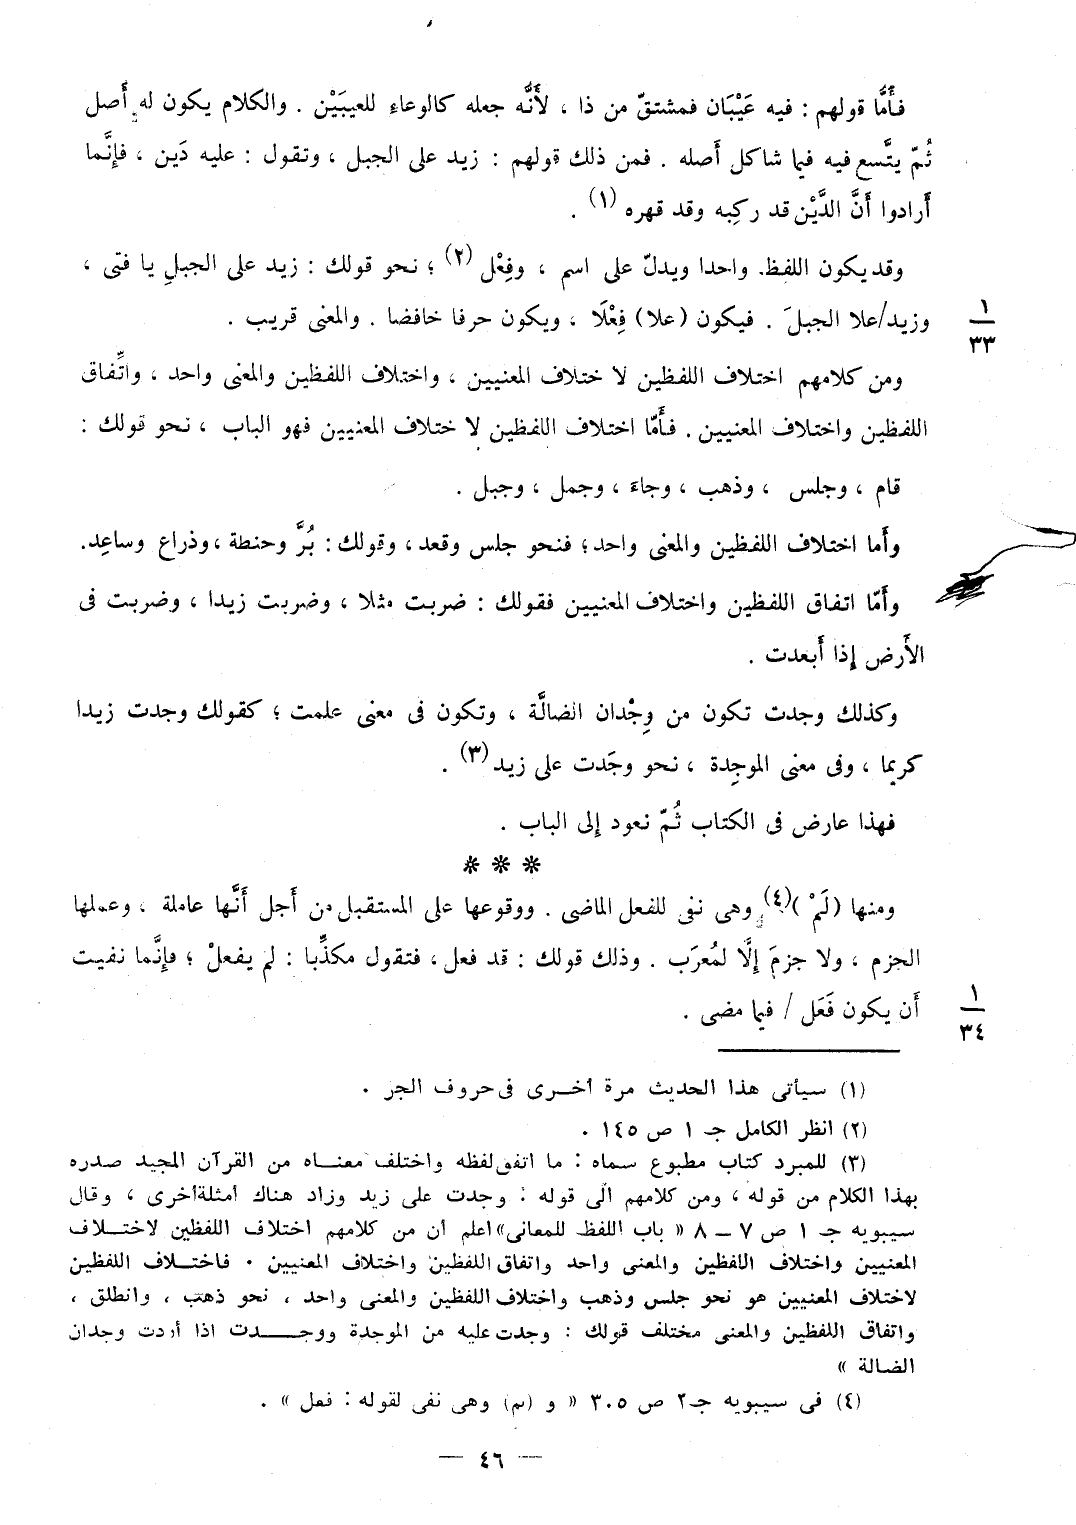 فأَمَّا قولهم : فيه عَيْبَان فمشتقّ من ذا ، لأَنَّه جعله كالوعاء للعيبَيْن . والكلام يكون له أَصل
ثُمّ يتَّسع فيه فيما شاكل أَصله . فمن ذلك قولهم : زيد على الجبل ، وتقول : عليه دَين ، فإِنَّما
أَرادوا أَنَّ الدَّيْن قد ركِبه وقد قهره (١) .
وقد يكون اللفظ واحدا ويدلّ على اسم ، وفِعْل (٢) ؛ نحو قولك : زيد على الجبلِ يا فتى ،
وزيد/علا الجبلَ . فيكون (علا) فِعْلَا ، ويكون حرفا خافضا . والمعنى قريب .
١
٣٣
ومن كلامهم اختلاف اللفظين لاختلاف المعنيين ، واختلاف اللفظين والمعنى واحد ، واتِّفاق
اللفظين واختلاف المعنيين . فأَمّا اختلاف اللفظين لاختلاف المعنيين فهو الباب ، نحو قولك :
قام ، وجلس ، وذهب ، وجاءَ ، وجمل ، وجبل .
وأَما اختلاف اللفظين والمعنى واحد ؛ فنحو جلس وقعد ، وقولك : بُرّ وحنطة ، وذراع وساعِد .
وأَمّا اتفاق اللفظين واختلاف المعنيين فقولك : ضربت مثلا ، وضربت زيدا ، وضربت فى
الأَرض إِذا أَبعدت .
وكذلك وجدت تكون من وِجْدان الضالَّة ، وتكون فى معنى علمت ؛ كقولك وجدت زيدا
كريما ، وفى معنى الموجِدة ، نحو وجَدت على زيد (٣) .
فهذا عارض فى الكتاب ثُمّ نعود إِلى الباب .
***
ومنها (لَمْ) (٤) وهى نفى للفعل الماضى . ووقوعها على المستقبل من أَجل أَنَّها عاملة ، وعملها
الجزم ، ولا جزمَ إِلَّا لمُعرَب . وذلك قولك : قد فعل ، فتقول مكذِّبا : لم يفعلْ ؛ فإِنَّما نفيت
أَن يكون فَعَل / فيما مضى .
١
٣٤
(١) سيأتى هذا الحديث مرة أخرى فى حروف الجر .
(٢) انظر الكامل جـ ١ ص ١٤٥ .
(٣) للمبرد كتاب مطبوع سماه : ما اتفق لفظه واختلف معناه من القرآن المجيد صدره
بهذا الكلام من قوله ، ومن كلامهم الى قوله : وجدت على زيد وزاد هناك أمثلة أخرى ، وقال
سيبويه جـ ١ ص ٧ – ٨ « باب اللفظ للمعانى » اعلم أن من كلامهم اختلاف اللفظين لاختلاف
المعنيين واختلاف اللفظين والمعنى واحد واتفاق اللفظين واختلاف المعنيين . فاختلاف اللفظين
لاختلاف المعنيين هو نحو جلس وذهب واختلاف اللفظين والمعنى واحد ، نحو ذهب ، وانطلق ،
واتفاق اللفظين والمعنى مختلف قولك : وجدت عليه من الموجدة ووجدت اذا أردت وجدان
الضالة »
(٤) فى سيبويه جـ٢ ص ٣٠٥ « و (لم) وهى نفى لقوله : فعل » .
— ٤٦ —